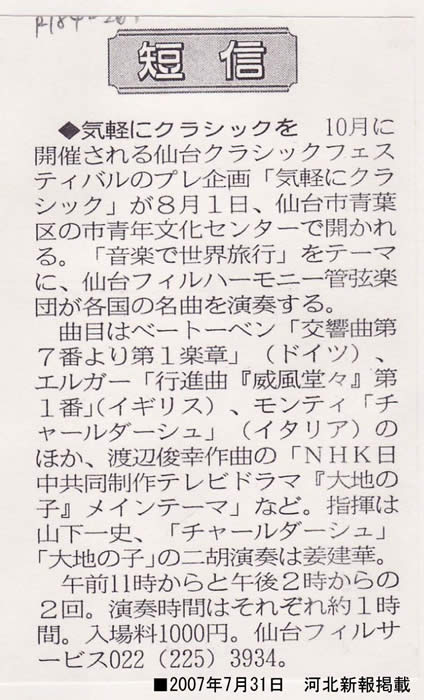 短信
◆気軽にクラシックを　10月に
開催される仙台クラシックフェス
ティバルのプレ企画「気軽にクラ
シック」が８月１日、仙台市青葉
区の市青年文化センターで開かれ
る。「音楽で世界旅行」をテーマ
に、仙台フィルハーモニー管弦楽
団が各国の名曲を演奏する。
　曲目はベートーベン「交響曲第
７番より第１楽章」（ドイツ）、
エルガー「行進曲『威風堂々』第
１番」（イギリス）、モンティ「チ
ャールダーシュ」（イタリア）の
ほか、渡辺俊幸作曲の「ＮＨＫ日
中共同制作テレビドラマ『大地の
子』メインテーマ」など。指揮は
山下一史、「チャールダーシュ」
「大地の子」の二胡演奏は姜建華。
　午前11時からと午後２時からの
２回。演奏時間はそれぞれ約１時
間。入場料1000円。仙台フィルサ
ービス022（225）3934。
■2007年7月31日　河北新報掲載